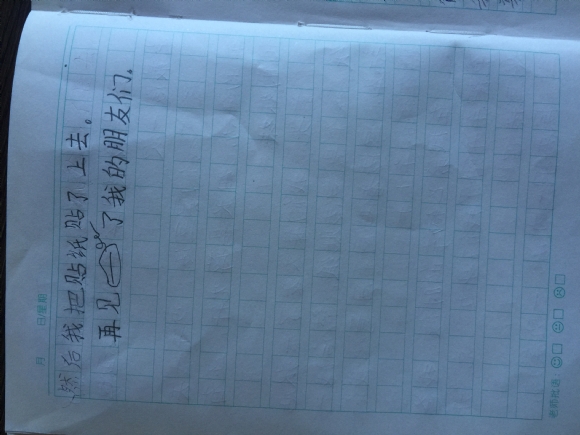 月 日 星期
然后我把贴纸贴了上去。
再见了我的朋友们。
老师批语: